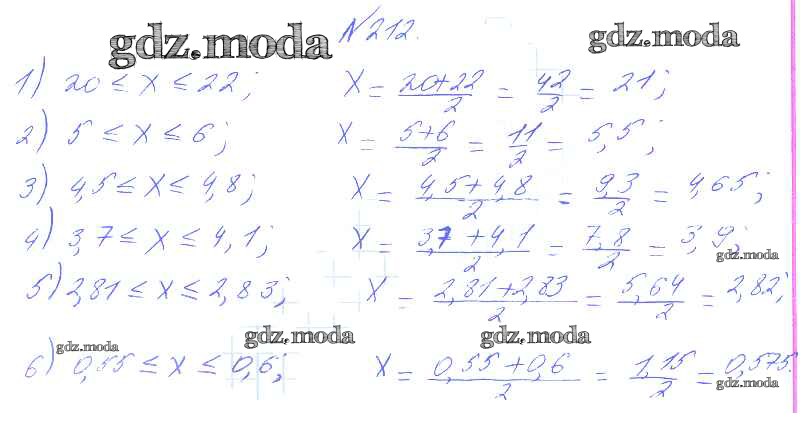 gdz.moda №212. gdz.moda
1) 20 ≤ x ≤ 22; x = (20+22)/2 = 42/2 = 21;
2) 5 ≤ x ≤ 6; x = (5+6)/2 = 11/2 = 5,5;
3) 4,5 ≤ x ≤ 4,8; x = (4,5+4,8)/2 = 9,3/2 = 4,65;
4) 3,7 ≤ x ≤ 4,1; x = (3,7+4,1)/2 = 7,8/2 = 3,9;
gdz.moda
5) 2,81 ≤ x ≤ 2,83; x = (2,81+2,83)/2 = 5,64/2 = 2,82;
gdz.moda gdz.moda gdz.moda
6) 0,55 ≤ x ≤ 0,6; x = (0,55+0,6)/2 = 1,15/2 = 0,575.
gdz.moda